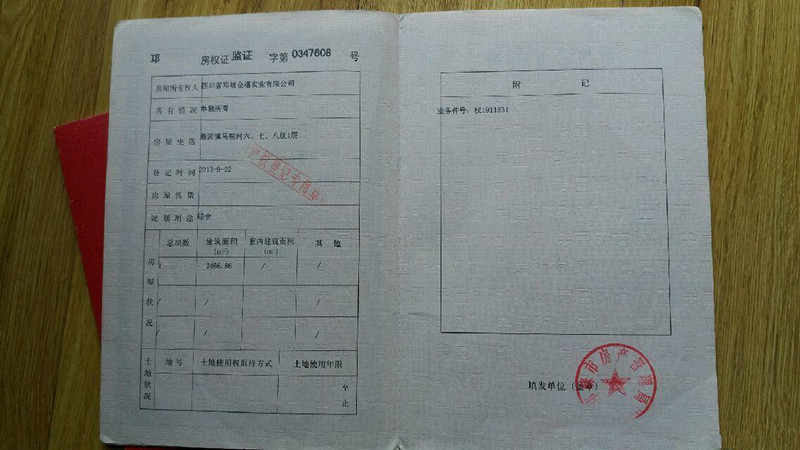 邛 房权证 监证 字第 0347608 号
房屋所有权人 四川省邛崃金禧实业有限公司
共有情况 单独所有
房屋坐落 桑园镇马鞍村六、七、八组1层
登记时间 2013-9-22
房屋性质
规划用途 综合
房屋状况
总层数 建筑面积(m²) 套内建筑面积(m²) 其他
1 2466.86 / /
/ / /
/ / /
土地状况
地号 土地使用权取得方式 土地使用年限
至
止
附 记
业务件号:权1911331
填发单位(盖章)
市房产管理局